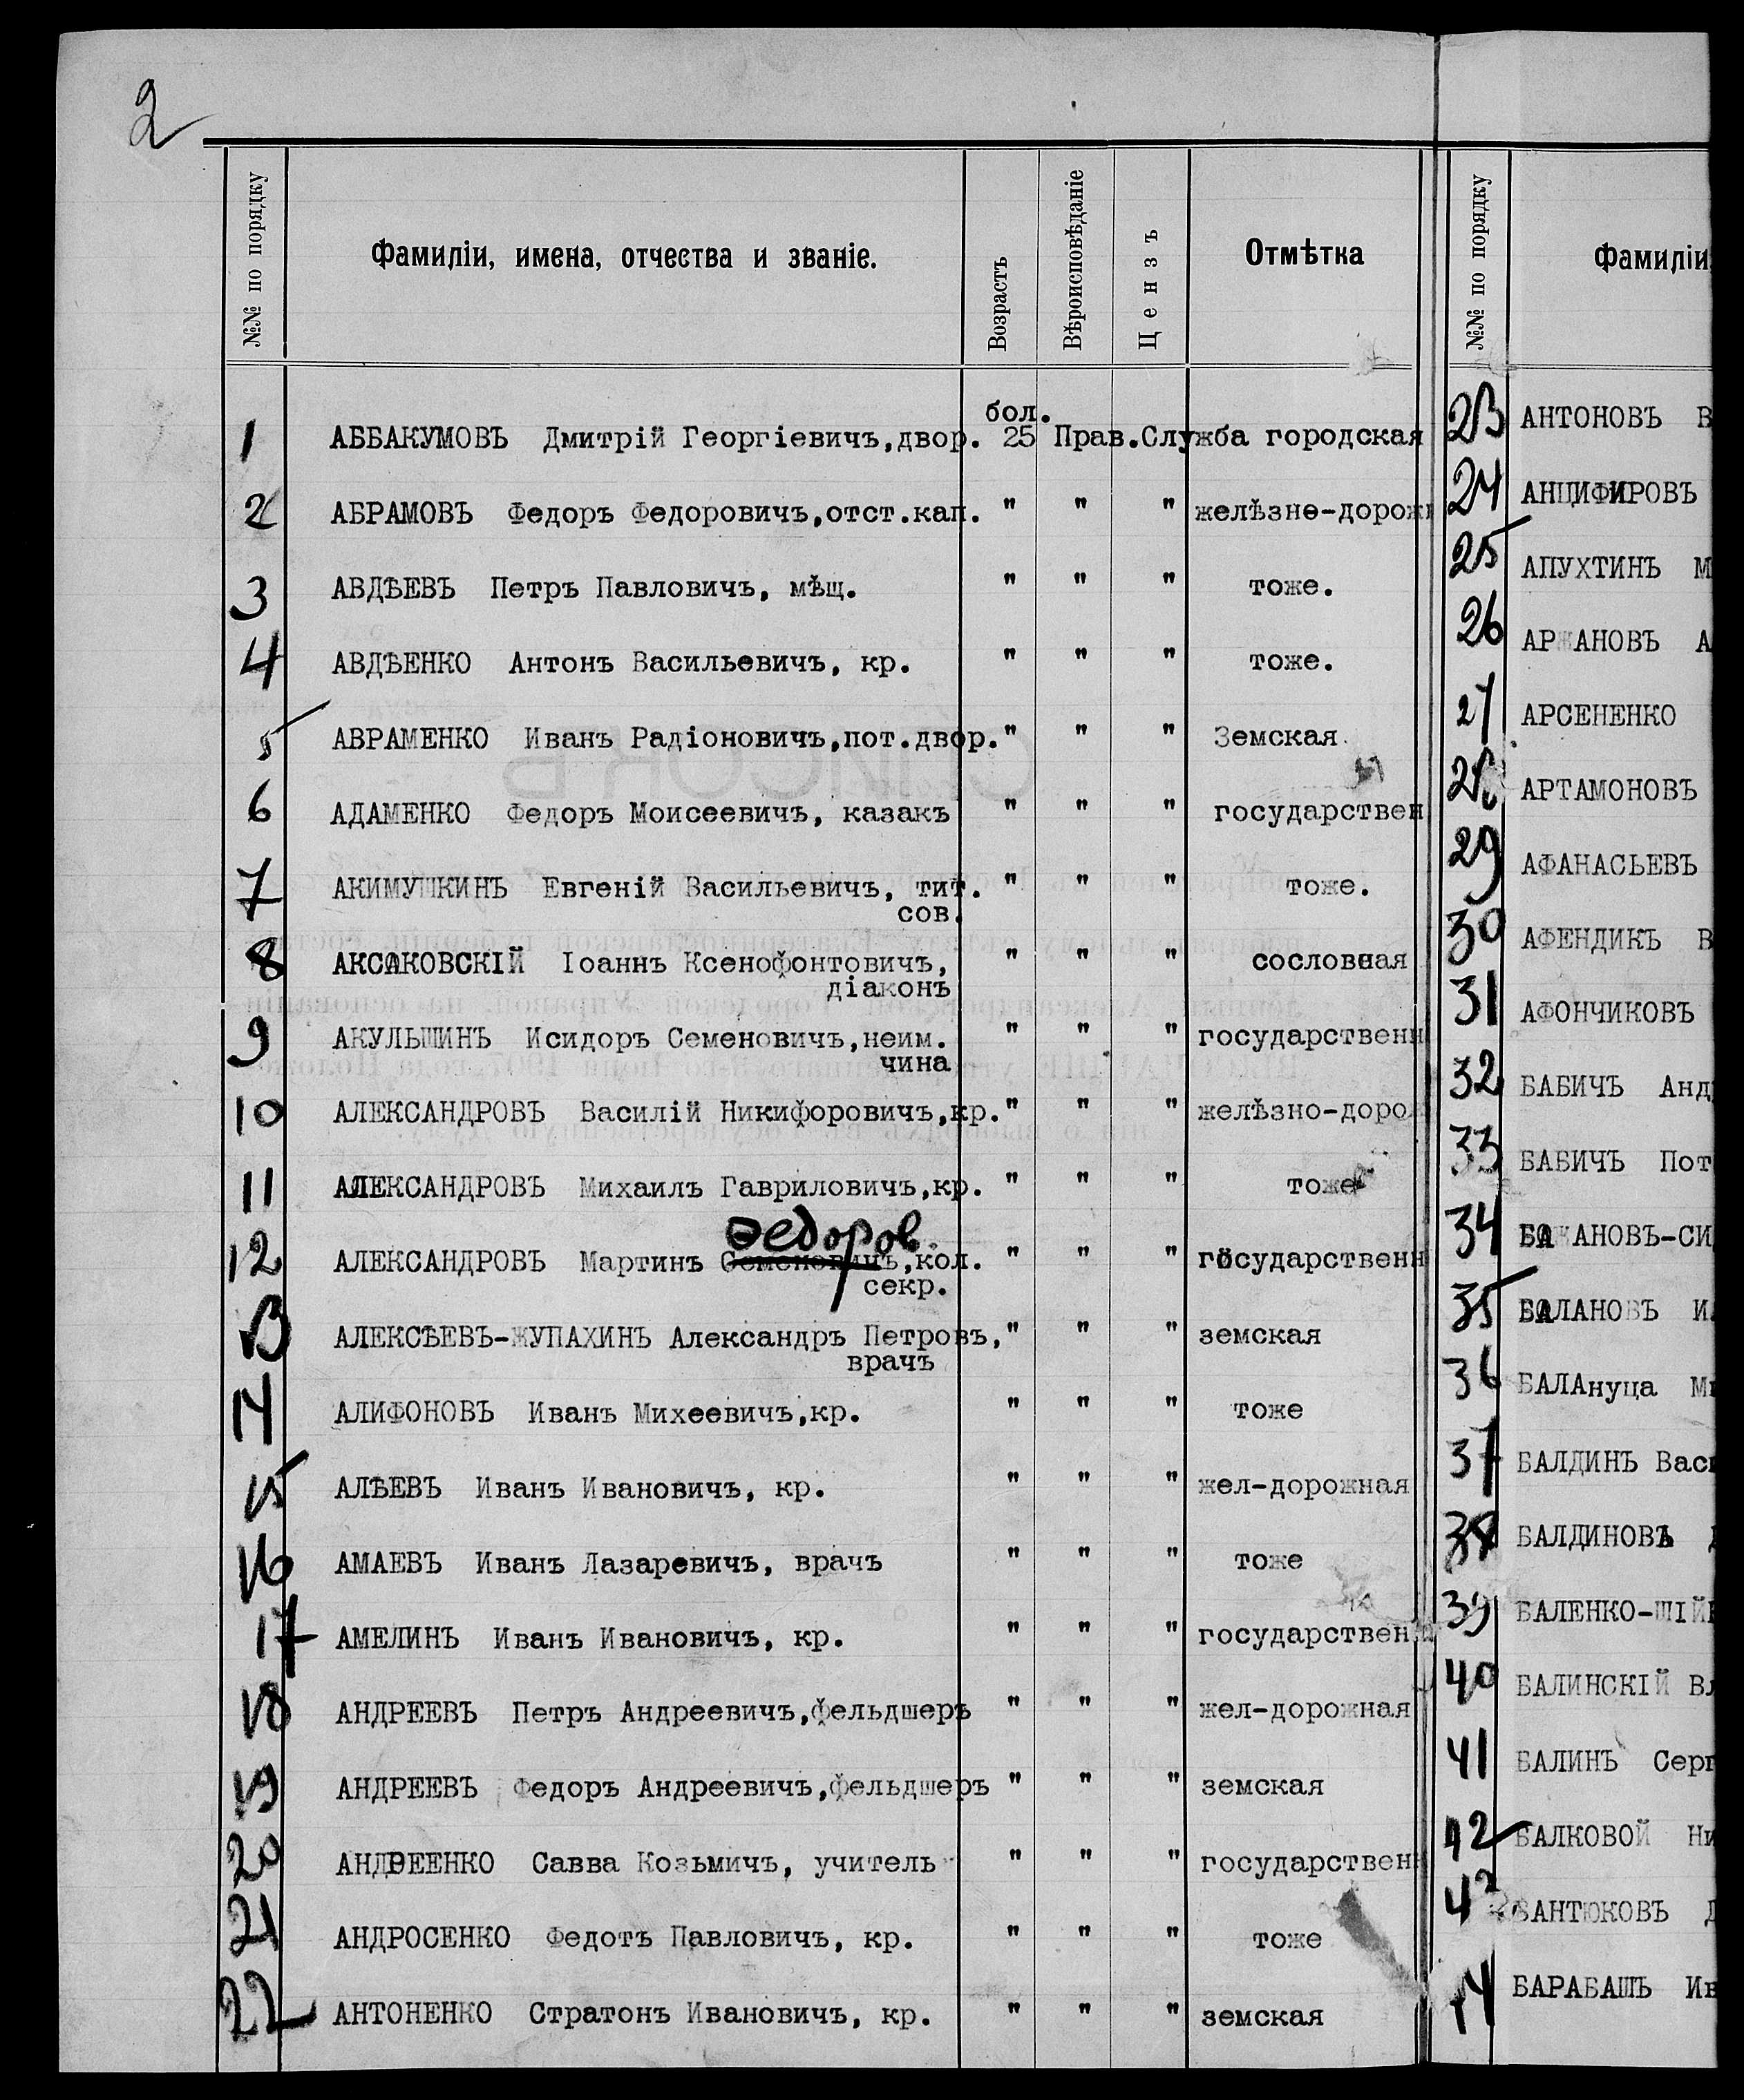 2
№№ по порядку
Фамиліи, имена, отчества и званіе.
Возрастъ
Вѣроисповѣданіе
Цензъ
Отмѣтка
1 АББАКУМОВЪ Дмитрій Георгіевичъ,двор. бол. 25 Прав. Служба городская
2 АБРАМОВЪ Федоръ Федоровичъ,отст.кап. " " " желѣзно-дорож
3 АВДѢЕВЪ Петръ Павловичъ, мѣщ. " " " тоже.
4 АВДѢЕНКО Антонъ Васильевичъ, кр. " " " тоже.
5 АВРАМЕНКО Иванъ Радіоновичъ,пот.двор. " " " Земская
6 АДАМЕНКО Федоръ Моисеевичъ, казакъ " " " государствен
7 АКИМУШКИНЪ Евгеній Васильевичъ, тит. " " " тоже.
сов.
8 АКСАКОВСКІЙ Іоаннъ Ксенофонтовичъ, " " " сословная
діаконъ
9 АКУЛЬШИНЪ Исидоръ Семеновичъ,неим. " " " государственн
чина
10 АЛЕКСАНДРОВЪ Василій Никифоровичъ,кр. " " " желѣзно-дорож
11 АЛЕКСАНДРОВЪ Михаилъ Гавриловичъ,кр. " " " тоже
Федоров.
12 АЛЕКСАНДРОВЪ Мартинъ Семеновичъ,кол. " " " государственн
секр.
13 АЛЕКСѢЕВЪ-ЖУПАХИНЪ Александръ Петровъ, " " " земская
врачъ
14 АЛИФОНОВЪ Иванъ Михеевичъ,кр. " " " тоже
15 АЛѢЕВЪ Иванъ Ивановичъ, кр. " " " жел-дорожная
16 АМАЕВЪ Иванъ Лазаревичъ, врачъ " " " тоже
17 АМЕЛИНЪ Иванъ Ивановичъ, кр. " " " государствен
18 АНДРЕЕВЪ Петръ Андреевичъ,фельдшеръ " " " жел-дорожная
19 АНДРЕЕВЪ Федоръ Андреевичъ,фельдшеръ " " " земская
20 АНДРЕЕНКО Савва Козьмичъ, учитель " " " государственн
21 АНДРОСЕНКО Федотъ Павловичъ, кр. " " " тоже
22 АНТОНЕНКО Стратонъ Ивановичъ, кр. " " " земская
№№ по порядку
Фамиліи
23 АНТОНОВЪ В
24 АНЦИФИРОВЪ
25 АПУХТИНЪ М
26 АРЖАНОВЪ А
27 АРСЕНЕНКО
28 АРТАМОНОВЪ
29 АФАНАСЬЕВЪ
30 АФЕНДИКЪ В
31 АФОНЧИКОВЪ
32 БАБИЧЪ Анд
33 БАБИЧЪ Пот
34 БАЖАНОВЪ-СИ
35 БАЛАНОВЪ Ил
36 БАЛАнуца Ми
37 БАЛДИНЪ Васи
38 БАЛДИНОВЪ
39 БАЛЕНКО-ШІЙ
40 БАЛИНСКІЙ Вл
41 БАЛИНЪ Серг
42 БАЛКОВОЙ Ни
43 БАНТЮКОВЪ Д
44 БАРАБАШЪ Ив